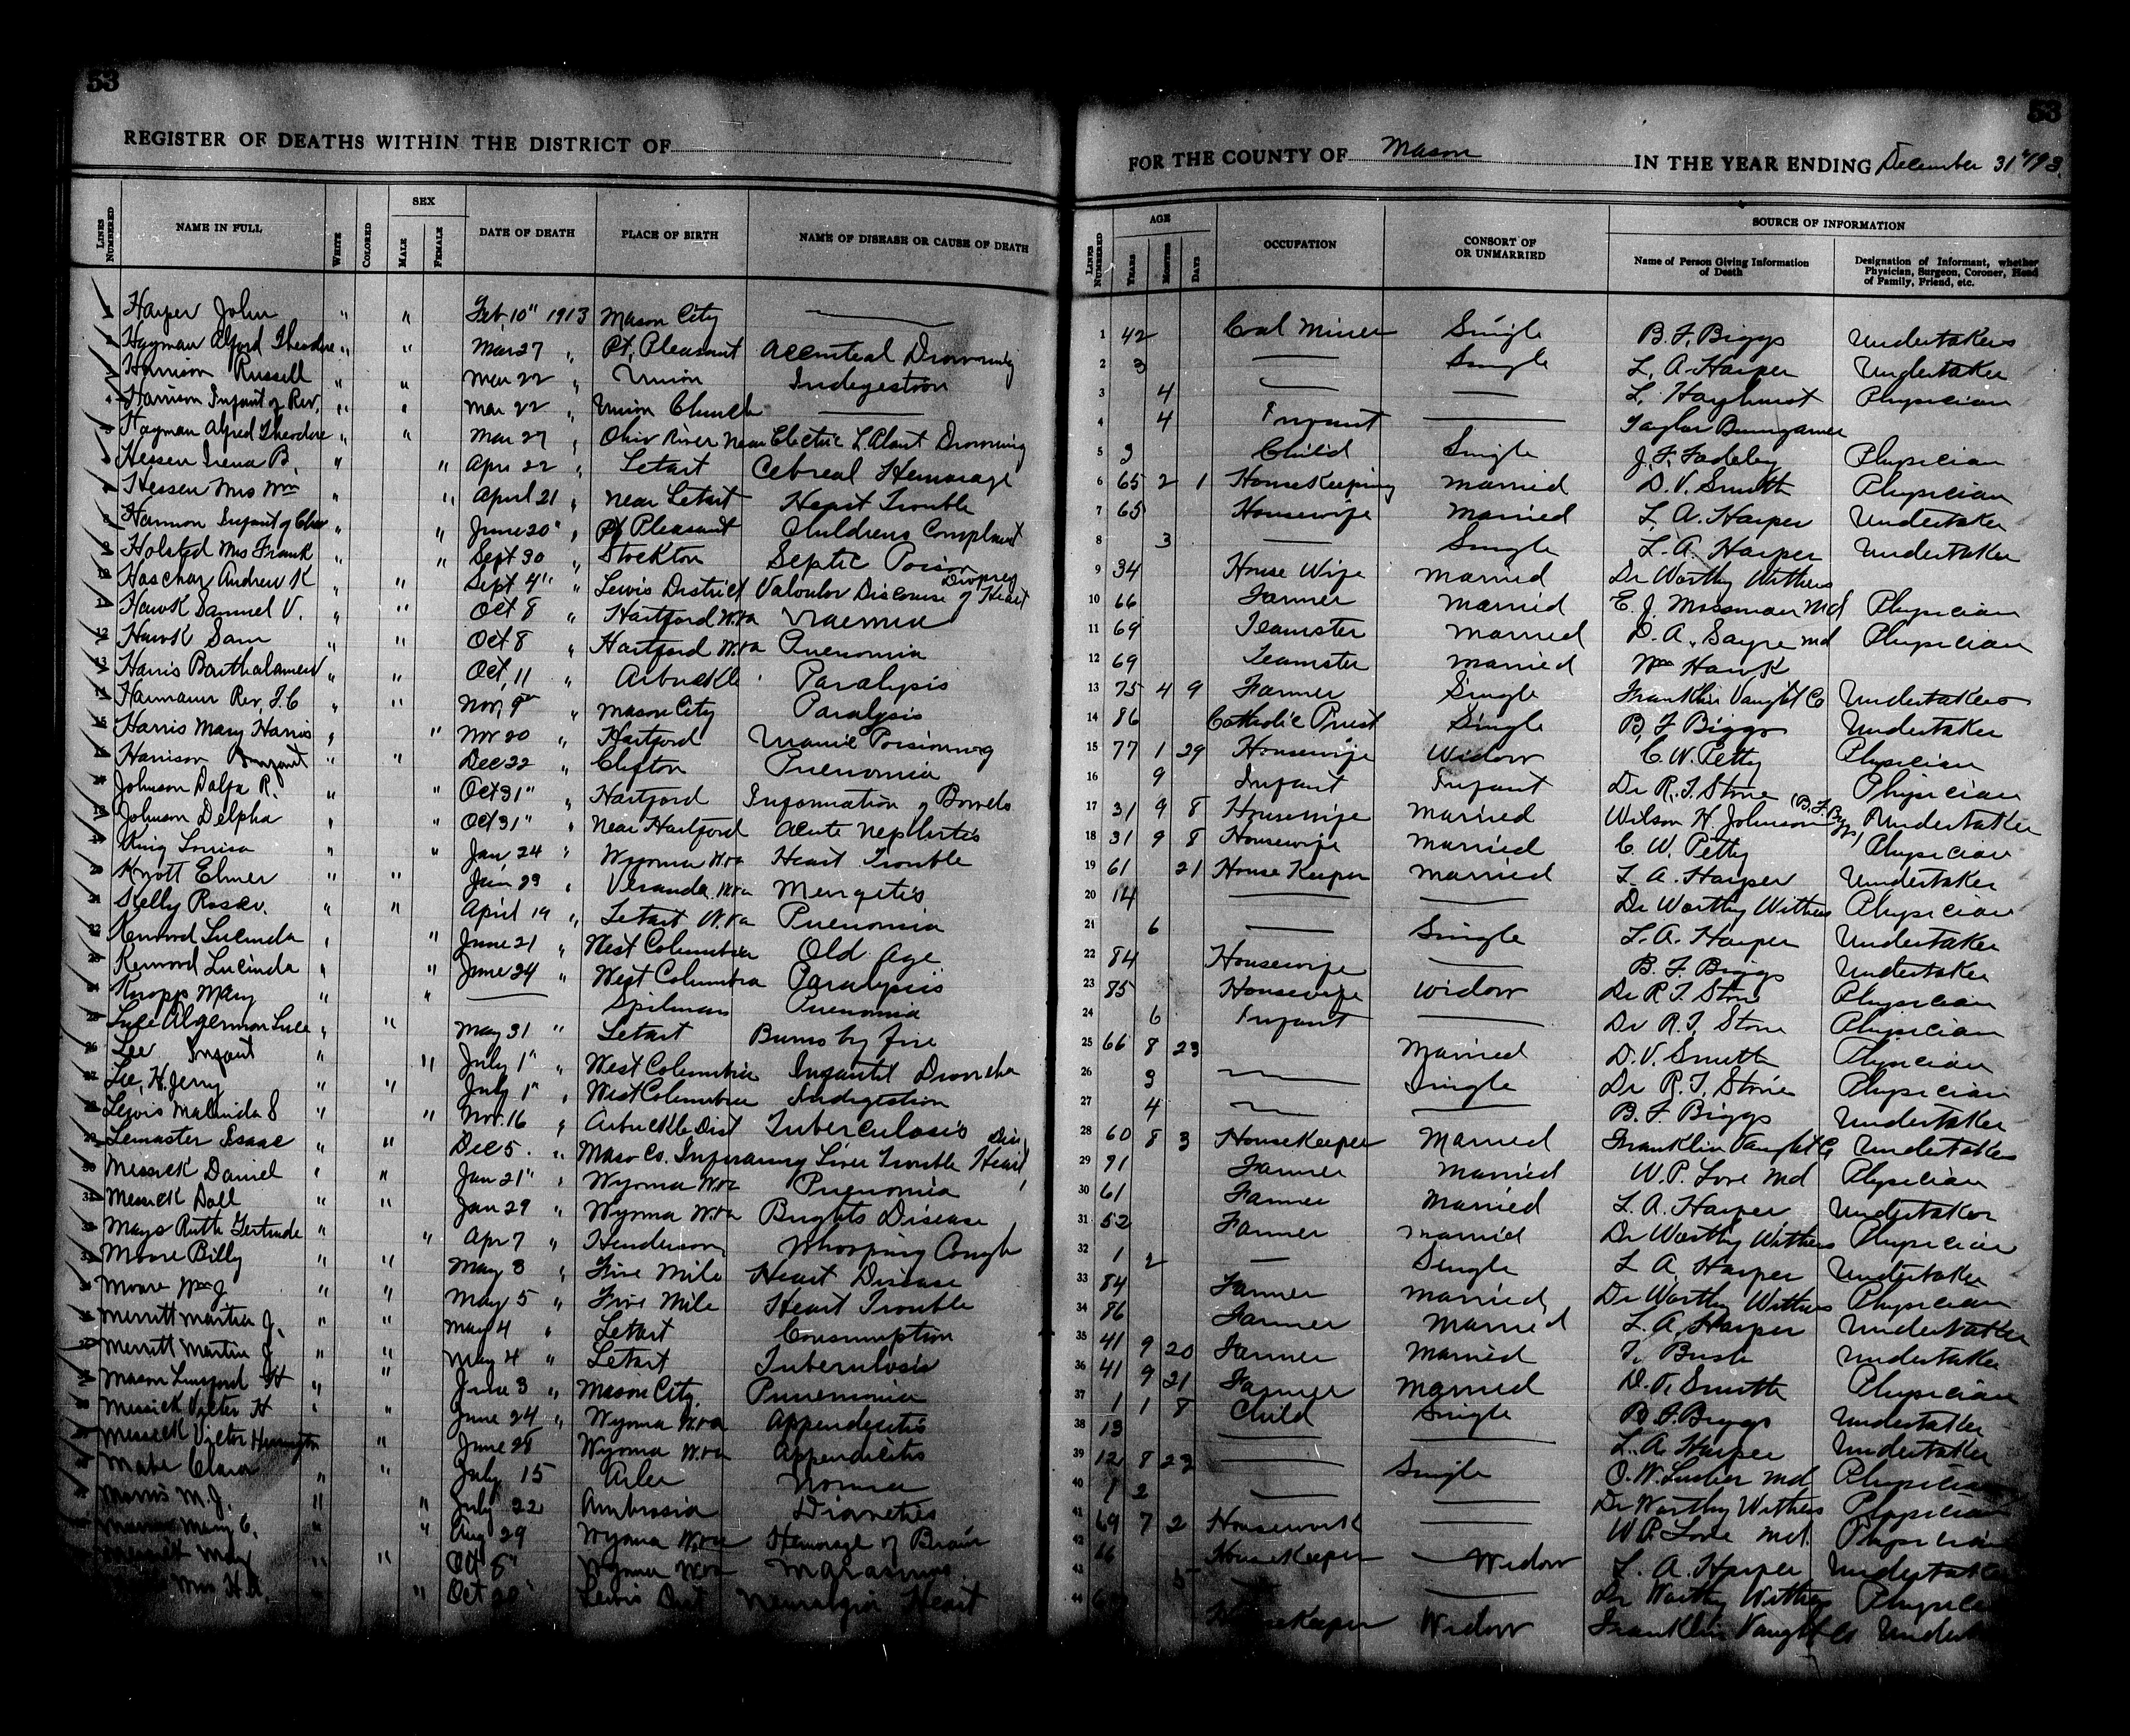 53
REGISTER OF DEATHS WITHIN THE DISTRICT OF
LINES NUMBERED
NAME IN FULL
WHITE
COLORED
SEX
MALE
FEMALE
DATE OF DEATH
PLACE OF BIRTH
NAME OF DISEASE OR CAUSE OF DEATH
Harper John " " Feb, 10" 1913 Mason City
Hayman Alford Theodore " " Mar 27 " Pt. Pleasant Accenteal Drowning
Harrison Russell " " Mar 22 " Union Indigestion
Harrison Infant of Rev, " " Mar 22 " Union Church
Hayman Alfred Theodore " " Mar 27 " Ohio River near Electric L. Plant Drowning
Hessen Irena B, " " Apr 22 " Letart Cebreal Hemorage
Hessen Mrs Wm " " April 21 " near Letart Heart Trouble
Harmon Infant of " " June 20" " Pt Pleasant Childrens Complaint
Holsted Mrs Frank " " Sept 30 " Stockton Septic Poison
Haschar Andrew K " " Sept 4" " Lewis District Valoulor Discease of Heart Dropsy
Hawk Samuel V. " " Oct 8 " Hartford W.Va Uraemia
Hawk Sam " " Oct 8 " Hartford W.Va Pnenomia
Harris Barthalamew " " Oct, 11 " Arbuckle Paralysis
Harmann Rev, F. C " " Nov, 9" " Mason City Paralysis
Harris Mary Harris " " Nov 20 " Hartford Uramic Poisioning
Harrison Infant " " Dec 22 " Clifton Pnenomia
Johnson Dalfa R. " " Oct 31" " Hartford Information of Bowels
Johnson Delpha " " Oct 31" " near Hartford acute nephritis
King Louisa " " Jan 24 " Wyoma W.Va Heart Trouble
Knott Elmer " " Jan 29 " Veranda W.Va Mengetis
Kelly Roscoe. " " April 19 " Letart W.Va Pnenomia
Lucinda " " June 21 " West Columbia Old Age
Lucinda " " June 24 " West Columbia Paralysis
Knopp Mary " " Spilman Pnenomia
Luce Algernon Luce " " May 31 " Letart Burns by fire
Lee Infant " " July 1" " West Columbia Infantil
Lee, H. Jerry " " July 1" " West Columbia Indigestion
Lewis Malinda S " " Nov. 16 " Arbuckle Dist Tuberculosis
Lemaster Isaac " " Dec 5. " Maso Co. Infirmary Liver Trouble Heart Dis,
Messick Daniel " " Jan 21" " Wyoma W.Va Pnenomia
Messick Doll " " Jan 29 " Wyoma W.Va Brights Disease
Mays Ruth Gertrude " " Apr 7 " Henderson Whooping Cough
Moore Billy " " May 3 " Five Mile Heart Disease
Moore Wm J " " May 5 " Five Mile Heart Trouble
Merritt Martin J. " " May 4 " Letart Consumption
Merritt Martin J " " May 4 " Letart Tuberculosis
Mason Lunsford H " " June 3 " Mason City Pnuemonia
Messick Victer H " " June 24 " Wyoma W.Va Appendecitis
Messick Victor " June 28 Wyoma W.Va Appendicitis
Mabe Clara " " July 15
Morris M. J. " " July 22 Ambrosia
Mary C. " " Aug 29 Wyoma W.Va Hemorage of Brain
May " " Oct 5" Wyoma W.Va Marasmus
Mrs H. A. " " Oct 20" Lewis Dist Neuralgia Heart
53
FOR THE COUNTY OF Mason IN THE YEAR ENDING December 31" 1913.
LINES NUMBERED
AGE
YEARS
MONTHS
DAYS
OCCUPATION
CONSORT OF OR UNMARRIED
SOURCE OF INFORMATION
Name of Person Giving Information of Death
Designation of Informant, whether Physician, Surgeon, Coroner, Head of Family, Friend, etc.
1 42 Coal Miner Single B. F. Biggs Undertakers
2 3 Single L. A. Harper Undertaker
3 4 L. Hayhurst Physician
4 4 Infant Taylor Bumgarner
5 3 Child Single J. F. Fadeley Physician
6 65 2 1 HouseKeeping Married D. V. Smith Physician
7 65 Housewife Married L. A. Harper Undertaker
8 3 Single L. A. Harper Undertaker
9 34 House Wife Married Dr Worthy Withers
10 66 Farmer Married E. J. Mossman Md Physician
11 69 Teamster Married D. A. Sayre Md Physician
12 69 Teamster Married Wm Hawk
13 75 4 9 Farmer Single Franklin Vaught Co Undertakers
14 86 Catholic Priest Single B, F Biggs Undertaker
15 77 1 29 Housewife Widow C. W. Petty Physician
16 9 Infant Infant Dr R. T. Stone Physician
17 31 9 8 Housewife Married Wilson H. Johnson (B. F. Biggs) Undertaker
18 31 9 8 Housewife Married C. W. Petty Physician
19 61 21 House Keeper Married L. A. Harper Undertaker
20 14 Dr Worthy Withers Physician
21 6 Single L. A. Harper Undertaker
22 84 Housewife B. F. Biggs Undertaker
23 85 Housewife Widow Dr R. T. Stone Physician
24 6 Infant Dr R. T. Stone Physician
25 66 8 23 Married D. V. Smith Physician
26 3 Single Dr R. T. Stone Physician
27 4 B. F. Biggs Undertaker
28 60 8 3 HouseKeeper Married Franklin Vaught Co Undertakers
29 71 Farmer Married W. P. Love Md Physician
30 61 Farmer Married L. A. Harper Undertaker
31 52 Farmer Married Dr Worthy Withers Physician
32 1 2 Single L. A. Harper Undertaker
33 84 Farmer Married Dr Worthy Withers Physician
34 86 Farmer Married L. A. Harper Undertaker
35 41 9 20 Farmer Married T. Bush Undertaker
36 41 9 21 Farmer Married D. V. Smith Physician
37 1 1 8 Child Single B. F. Biggs Undertaker
38 13 L. A. Harper Undertaker
39 12 8 23 Single O. W. Md Physician
40 1 2 Dr Worthy Withers Physician
41 69 7 2 Housework W. P. Love Md. Physician
42 66 HouseKeeper Widow L. A. Harper Undertaker
43 5 Dr Worthy Withers
44 HouseKeeper Widow Franklin Vaught Co